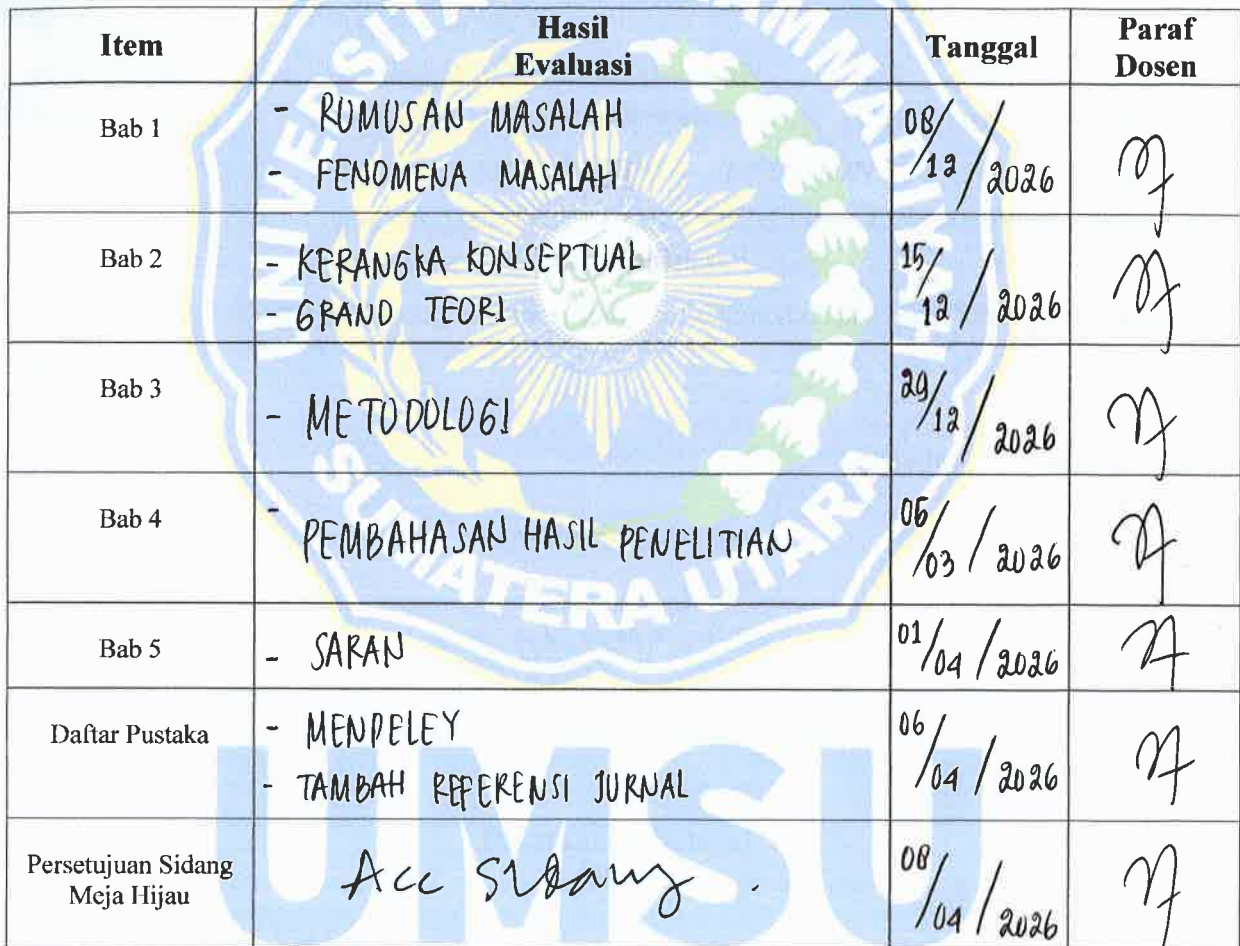 Item
Hasil
Evaluasi
Tanggal
Paraf
Dosen
Bab 1
- RUMUSAN MASALAH
- FENOMENA MASALAH
08/12/2026
Bab 2
- KERANGKA KONSEPTUAL
- GRAND TEORI
15/12/2026
Bab 3
- METODOLOGI
29/12/2026
Bab 4
- PEMBAHASAN HASIL PENELITIAN
06/03/2026
Bab 5
- SARAN
01/04/2026
Daftar Pustaka
- MENDELEY
- TAMBAH REFERENSI JURNAL
06/04/2026
Persetujuan Sidang
Meja Hijau
Acc Sidang.
08/04/2026
SUMATERA UTARA
UMSU